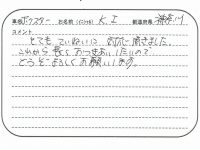 車種 ボクスター お名前(イニシャル) K.I 都道府県 神奈川
コメント
とても、ていねいに 対応して頂きました。
これから 長く おつきあいしたいので
どうぞ よろしく お願いします。